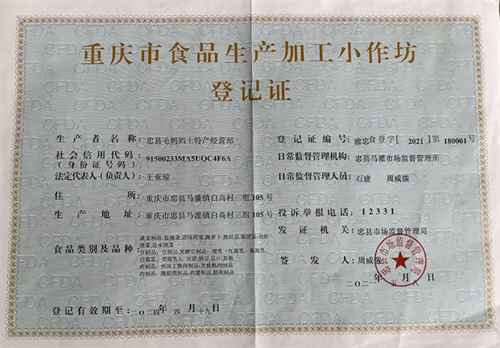 重庆市食品生产加工小作坊
登记证
生产者名称： 忠县毛妈妈土特产经营部
登记证编号： 渝忠食登字［2021］180001号
社会信用代码： 91500233MA5UQC4F6A
（身份证号码）
日常监督管理机构： 忠县马灌市场监督管理所
法定代表人（负责人）： 王亚琼
日常监督管理人员： 石建 周威儒
住所： 重庆市忠县马灌镇白高村三组105号
生产地址： 重庆市忠县马灌镇白高村三组105号
投诉举报电话： 12331
发证机关： 忠县市场监督管理局
食品类别及品种：
签发人： 周威儒
忠县市场监督管理局
登记有效期至： 二〇二四年四月十九日